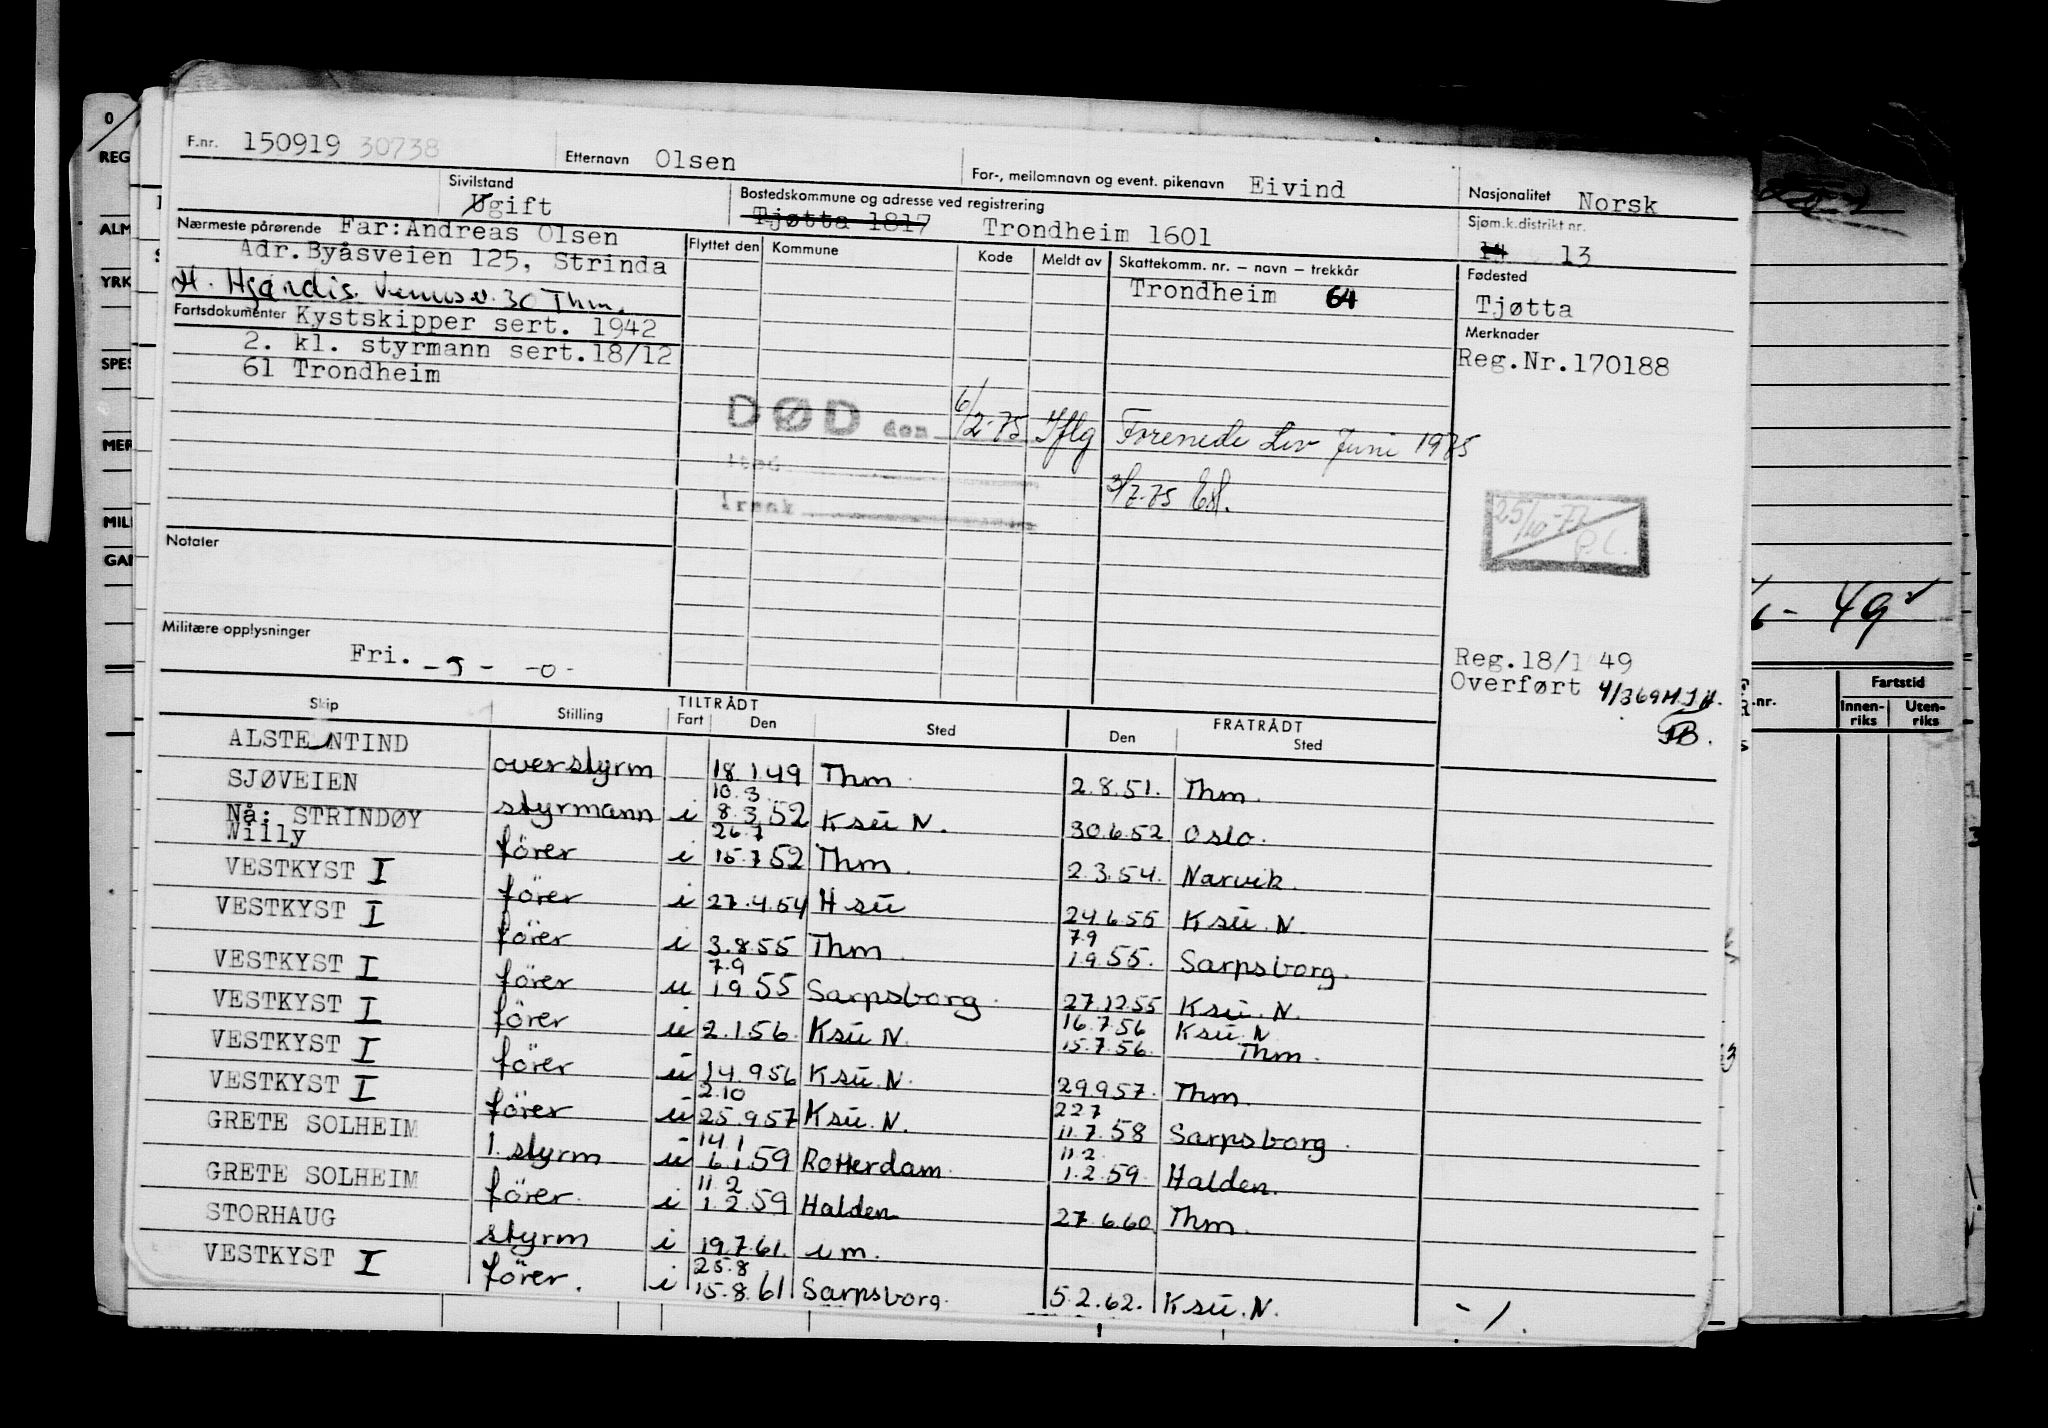 F.nr. 150919 30738 Etternavn Olsen For-, mellomnavn og event. pikenavn Eivind Nasjonalitet Norsk
Sivilstand Ugift Bostedskommune og adresse ved registrering Tjøtta 1817 Trondheim 1601 Sjøm.k.distrikt nr. 14 13
Nærmeste pårørende Far:Andreas Olsen
Adr.Byåsveien 125, Strinda
H. Hjørdis. Venusv. 30 Thm.
Flyttet den Kommune Kode Meldt av Skattekomm. nr. – navn – trekkår
Trondheim 64
Fødested
Tjøtta
Fartsdokumenter Kystskipper sert. 1942
2. kl. styrmann sert.18/12
61 Trondheim
Merknader
Reg.Nr.170188
DØD den 6/2-75 Iflg Forenede Liv Juni 1975
sted
årsak
3/7-75
25/10-77
Notater
Militære opplysninger
Fri. -5- -0-
Reg.18/1 49
Overført
Skip Stilling TILTRÅDT Fart Den Sted FRATRÅDT Den Sted
ALSTENTIND overstyrm 18.1.49 Thm. 2.8.51. Thm.
SJØVEIEN styrmann i 10.3 8.3.52 Ksu N. 30.6.52 Oslo.
Nå: STRINDØY
Willy förer i 26.7 15.7.52 Thm. 2.3.54. Narvik.
VESTKYST I förer i 27.4.54 H su 24.6.55 Ksu. N.
VESTKYST I förer i 3.8.55 Thm. 7.9 1.9.55. Sarpsborg.
VESTKYST I förer u 7.9 1.9.55 Sarpsborg. 27.12.55 Ksu. N.
VESTKYST I förer u 2.1.56. Ksu N. 16.7.56 Ksu. N
15.7.56. Thm.
VESTKYST I förer u 14.9.56 Ksu. N. 29.9.57. Thm.
VESTKYST I förer u 2.10 25.9.57 Ksu. N. 22.7 11.7.58 Sarpsborg.
GRETE SOLHEIM 1. styrm u 14.1 6.1.59 Rotterdam. 11.2 1.2.59. Halden.
GRETE SOLHEIM förer. i 11.2 1.2.59 Halden 27.6.60. Thm.
STORHAUG styrm i 19.7.61. u m.
VESTKYST I förer. i 25.8 15.8.61 Sarpsborg. 5.2.62. Ksu. N.
0
REG
ALM
YRK
SPES
MER
MILI
GAR
49
nr.
Fartstid
Innen-
riks
Uten-
riks